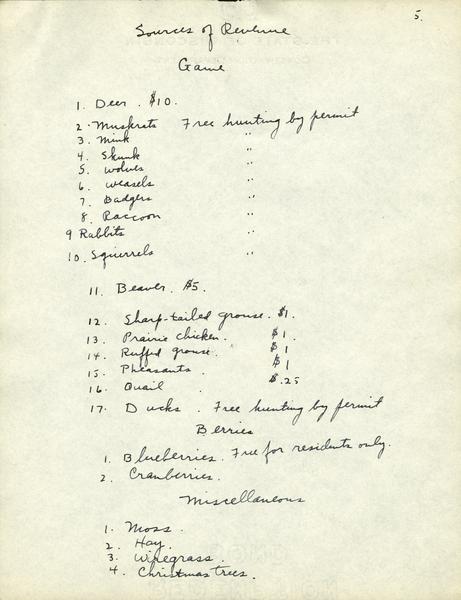 5.
Sources of Revenue
Game
1. Deer. $10.
2. Muskrats Free hunting by permit
3. Mink "
4. Skunk "
5. Wolves "
6. Weasels "
7. Badgers "
8. Raccoon "
9 Rabbits "
10. Squirrels "
11. Beaver. $5.
12. Sharp-tailed grouse. $1.
13. Prairie chicken. $1.
14. Ruffed grouse. $1
15. Pheasants. $1
16. Quail. $.25
17. Ducks. Free hunting by permit
Berries
1. Blueberries. Free for residents only.
2. Cranberries.
Miscellaneous
1. Moss.
2. Hay.
3. Wiregrass.
4. Christmas trees.